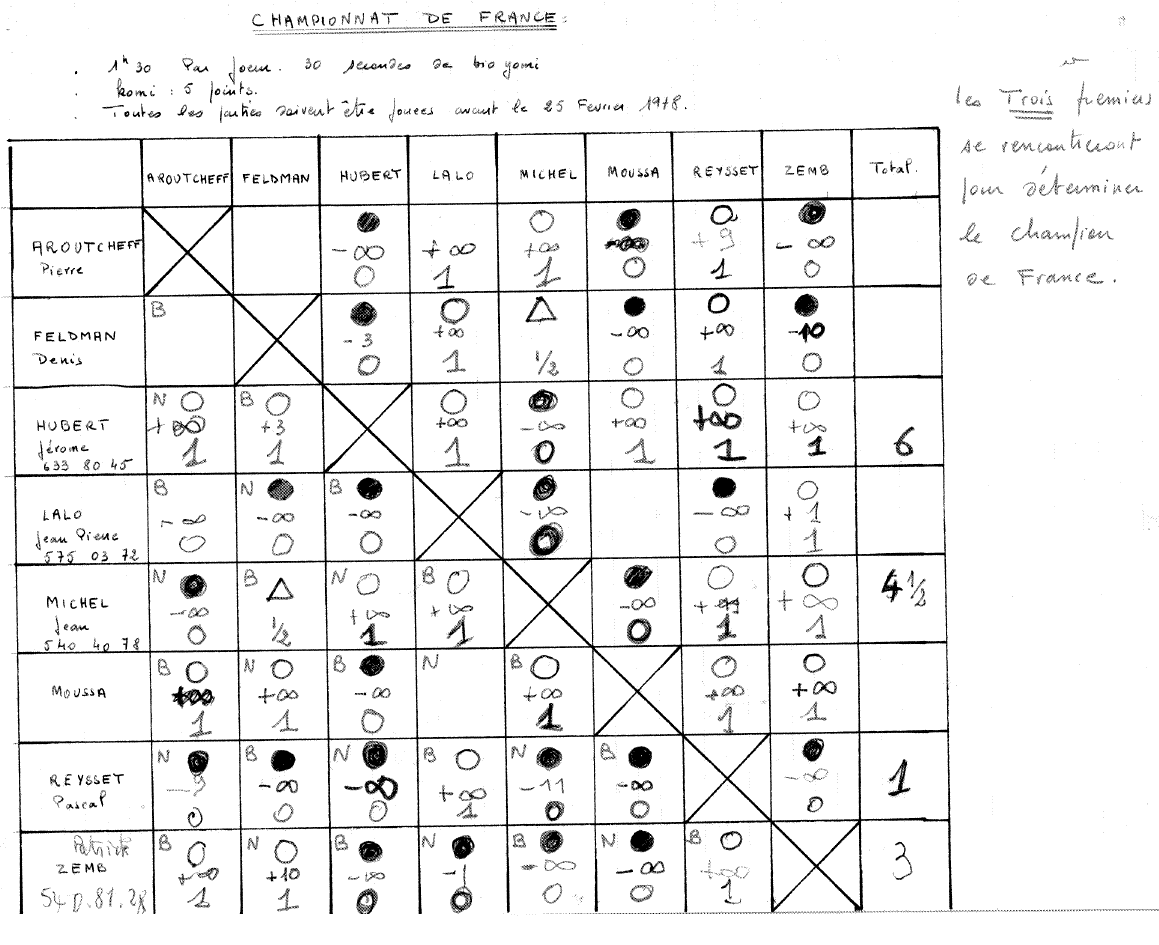 CHAMPIONNAT DE FRANCE:
. 1h30 Par Joeur. 30 secondes de bio yomi
. komi : 5 points.
. Toutes les parties doivent être jouées avant le 25 Fevrier 1978.
les Trois premiers
se rencontreront
pour déterminer
le champion
de France.
AROUTCHEFF FELDMAN HUBERT LALO MICHEL MOUSSA REYSSET ZEMB Total.
AROUTCHEFF
Pierre
-∞ +∞ +∞ +9 -∞
0 1 1 0 1 0
FELDMAN
Denis
B
-3 +∞ -∞ +∞ -10
0 1 1/2 0 1 0
HUBERT
Jérome
633 80 45
N B
+∞ +3 +∞ -∞ +∞ +∞ +∞
1 1 1 0 1 1 1 6
LALO
Jean Pierre
575 03 72
B N B
-∞ -∞ -∞ -∞ -∞ +1
0 0 0 0 0 1
MICHEL
Jean
540 40 78
N B N B
-∞ +∞ +∞ -∞ +∞
0 1/2 1 1 0 1 1 4 1/2
MOUSSA
B N B N B
+∞ +∞ -∞ +∞ +∞ +∞
1 1 0 1 1 1
REYSSET
Pascal
N B N B N B
-9 -∞ -∞ +∞ -11 -∞ -∞
0 0 0 1 0 0 0 1
Patrick
ZEMB
540.81.28
B N B N B N B
+∞ +10 -∞ -1 -∞ -∞ +∞
1 1 0 0 0 0 1 3